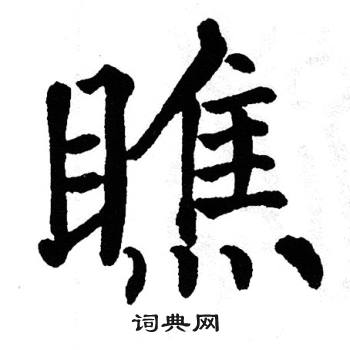 瞧
词典网